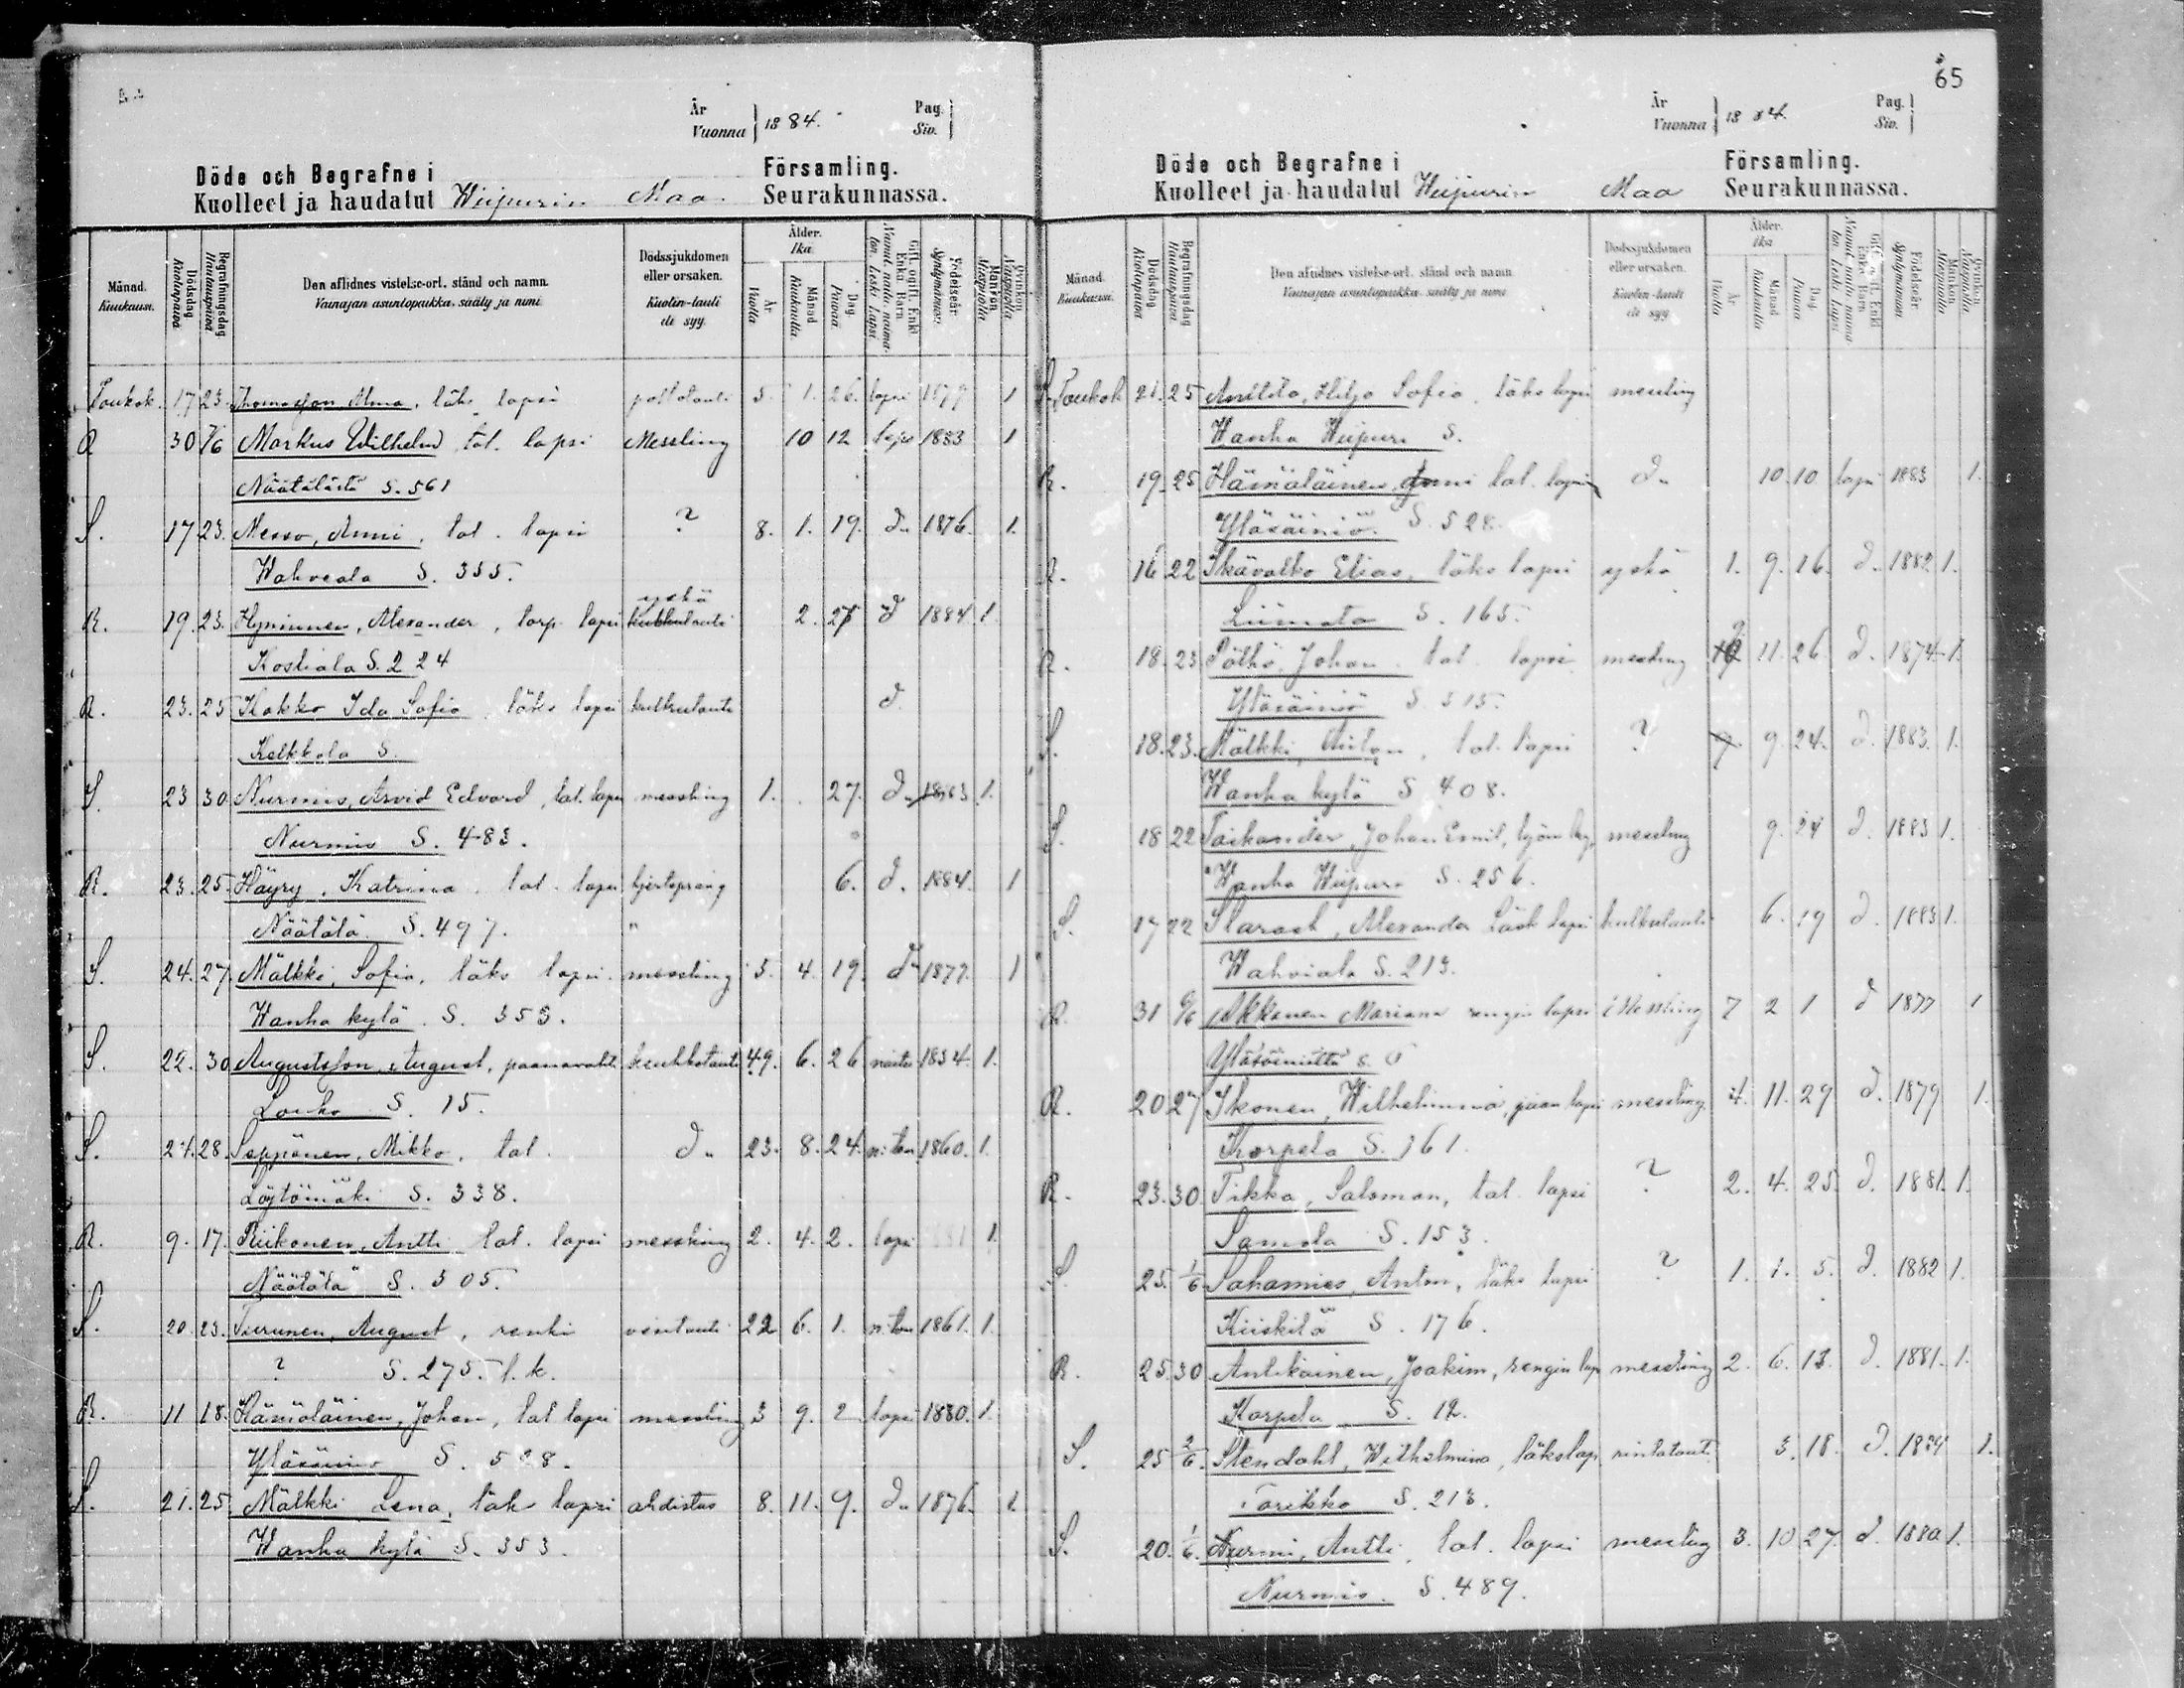 År
Vuonna 1884.
Pag.
Siv.
Döde och Begrafne i Församling.
Kuolleet ja haudatut Wiipurin Maa Seurakunnassa.
Månad. Kuukausi.
Dödsdag Kuolinpäivä
Begrafningsdag Hautauspäivä
Den aflidnes vistelse-ort. stånd och namn.
Vainajan asuntopaikka. sääty ja nimi
Dödssjukdomen eller orsaken.
Kuolin-tauti eli syy.
Ålder. Ikä.
År Vuotta
Månad Kuukautta
Dag Päivää
Gift, ogift, Enkl. Enka Barn
Nainut, naitu, naimaton. Leski Lapsi
Födelseår Syntymävuosi
Mankön Miespuolta
Qvinkön Naispuolta
Toukok. 17 23. Thomasson Alma, läks lapsi 5 1. 26. lapsi 1879 1
R 30 7/6 Markus Wilhelm tal. lapsi Messling 10 12 lapsi 1883 1
Näätälästä S. 561
S. 17 23. Messo, Anni, tal. lapsi ? 8. 1. 19. d. 1876. 1.
Wahveala S. 355.
yskä
R. 19. 23. Hyninnen, Alexander, torp. lapsi kulkutauti 2. 27 d 1884 1.
Kostiala S. 224
R. 23. 25 Kakko Ida Sofia läks lapsi kulkutauti d.
Kelkkala S.
S. 23 30 Nurmis, Arvid Edvard, tal. lapsi messling 1. 27. d. 1883 1.
Nurmis S. 483.
R. 23. 25. Häyry, Katrina tal. lapsi hjertsprång 6. d. 1884. 1
Näätälä S. 497. "
S. 24. 27 Mälkki, Sofia, läks lapsi. messling 5. 4. 19. d. 1879. 1
Wanha kylä S. 353.
S. 22. 30 Augustsson, August, keuhkotauti 49. 6. 26 naitu 1834. 1.
Louko S. 15.
S. 24. 28. Seppänen, Mikko, tal. d. 23. 8. 24. n:ton 1860. 1.
Löytömäki S. 338.
R. 9. 17. Riikonen, Antti tal. lapsi messling 2. 4. 2. lapsi 1881 1.
Näätälä S. 505.
S. 20. 23. Turunen, August, renki 22 6. 1. n:ton 1861. 1.
? S. 275. l. k.
R. 11 18. Hämäläinen, Johan, tal lapsi messling 3 9. 2 lapsi 1880. 1.
Yläsäiniö S. 528.
S. 21. 25 Mälkki Lena, läks lapsi ahdistus 8. 11. 9. d. 1876. 1.
Wanha kylä S. 353.
65
År
Vuonna 1884.
Pag.
Siv.
Döde och Begrafne i Församling.
Kuolleet ja haudatut Wiipurin Maa Seurakunnassa.
Månad. Kuukausi.
Dödsdag Kuolinpäivä
Begrafningsdag Hautauspäivä
Den aflidnes vistelse-ort. stånd och namn.
Vainajan asuntopaikka. sääty ja nimi
Dödssjukdomen eller orsaken.
Kuolin-tauti eli syy
Ålder. Ikä
År Vuotta
Månad Kuukautta
Dag Päivää
Gift, ogift, Enkl. Enka Barn
Nainut, naitu, naimaton. Leski Lapsi
Födelseår Syntymävuosi
Mankön Miespuolta
Qvinkön Naispuolta
S. Toukok 21. 25 Anttila, Hilja Sofia läks lapsi messling
Wanha Wiipuri S.
R. 19. 25 Hämäläinen, Anni tal. lapsi d. 10. 10 lapsi 1883 1.
Yläsäiniö. S. 528.
R. 16 22 Ikävalko Elias, läks lapsi yskä 1. 9. 16. d. 1882 1.
Liimata S. 165.
R. 18. 23 Pölhö, Johan. tal. lapsi messling 9 11. 26 d. 1874 1.
Yläsäiniö S. 515.
S. 18. 23. Mälkki, Anton, tal. lapsi ? 9 24. d. 1883. 1.
Wanha kylä S 408.
S. 18 22 Taskander, Johan Emil, messling 9 24 d. 1883 1.
Wanha Wiipuri S. 256.
S. 17 22 Starast, Alexander Läsk lapsi kulkutauti 6. 19 d. 1883 1.
Wahviala S. 213.
R. 31 6/6 Akkanen Mariana rengin lapsi Messling 7 2 1 d 1877 1
Yläsäiniöltä S.
R. 20 27 Ikonen, Wilhelmina, lapsi messling. 4. 11. 29 d. 1879 1.
Korpela S. 161.
R. 23. 30. Tikka, Salomon, tal. lapsi ? 2. 4. 25. d. 1881. 1.
Samola S. 153.
S. 25. 1/6 Sahamies, Anton, läks lapsi ? 1. 1. 5. d. 1882 1.
Kiiskilä S. 176.
R. 25. 30 Antikainen, Joakim, rengin lap messling 2. 6. 13. d. 1881. 1.
Karpela S. 12.
S. 25 2/6. Stendahl, Wilhelmina, läkslap rintataut. 3. 18. d. 1884 1.
Tarikko S. 213.
S. 20. 1/6. Nurmi, Antti, tal. lapsi messling 3. 10 27. d. 1880 1.
Nurmis. S. 489.